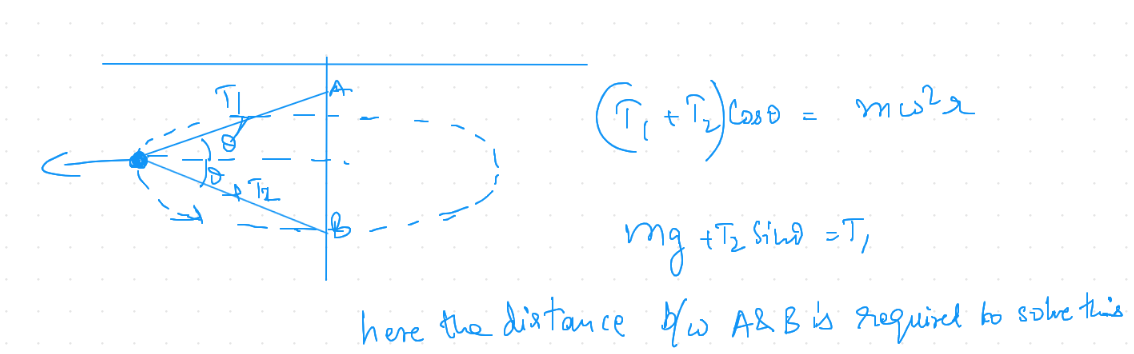 A
T₁
θ
θ
T₂
B
(T₁ + T₂) Cosθ = mω²r
mg + T₂ Sinθ = T₁
here the distance b/w A & B is required to solve this